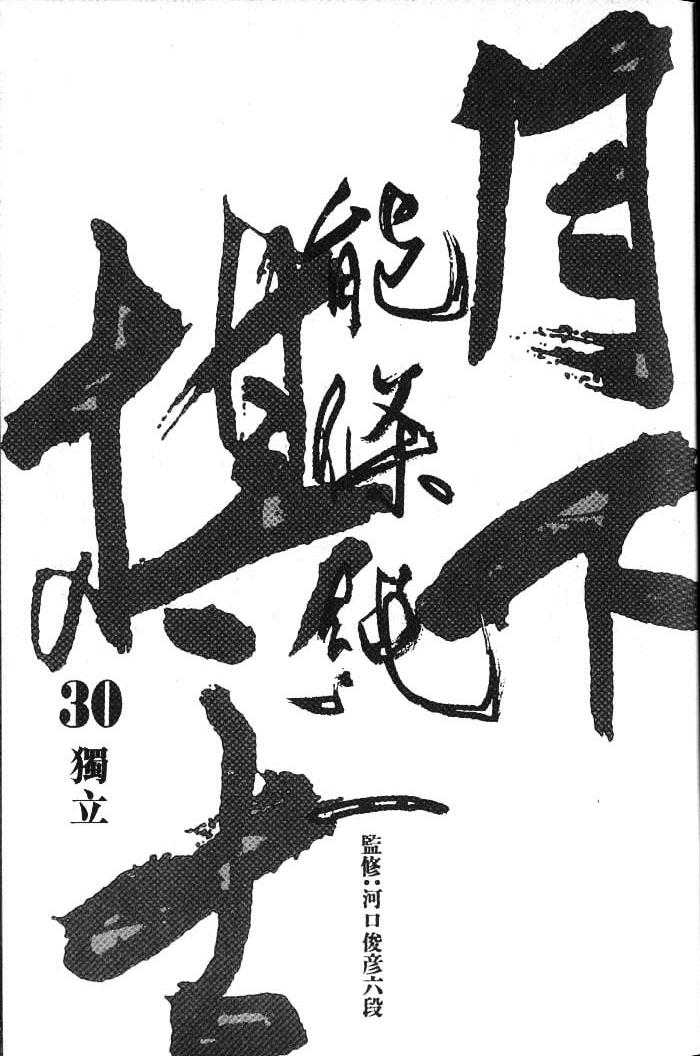 月下
棋士
能條純一
30
獨立
監修:河口俊彦六段